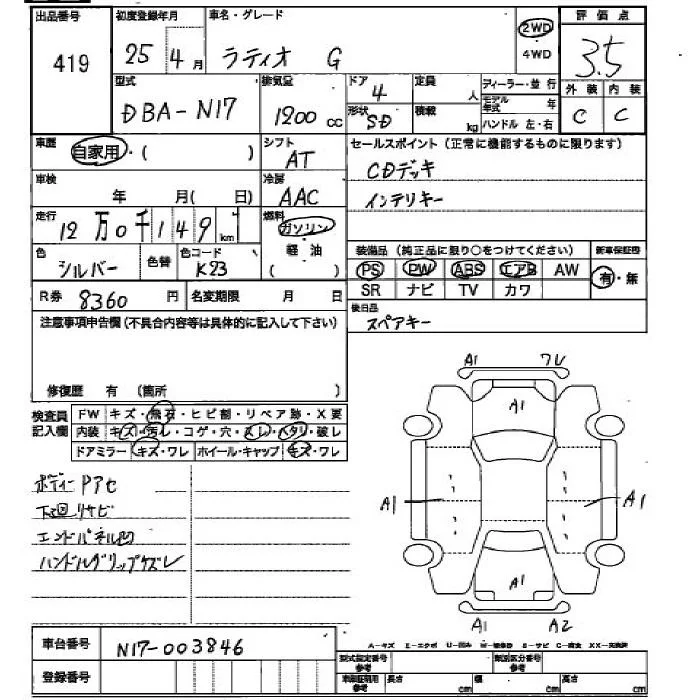 出品番号 初度登録年月 車名・グレード 評価点
419 25 4月 ラティオ G 2WD 3.5
4WD
型式 排気量 ドア 定員 ディーラー・並行 外装 内装
DBA-N17 1200cc 4 人 モデル年式 年 C C
形状 SD 積載 kg ハンドル 左・右
車歴 自家用・( ) シフト セールスポイント (正常に機能するものに限ります)
AT CDデッキ
車検 年 月( 日) 冷房 AAC インテリキー
走行 12万0千149km 燃料 ガソリン
軽油
( )
装備品 (純正品に限り○をつけてください) 新車保証書
色 シルバー 色替 色コード K23 PS PW ABS エアB AW 有・無
R券 8360円 名変期限 月 日 SR ナビ TV カワ
注意事項申告欄(不具合内容等は具体的に記入して下さい) 後日品
スペアキー
修復歴 有 (箇所 )
検査員 FW キズ・飛石・ヒビ割・リペア跡・X要
記入欄 内装 キズ・汚れ・コゲ・穴・スレ・ヘタリ・破レ
ドアミラー キズ・ワレ ホイール・キャップ キズ・ワレ
A1 ワレ
A1
A1 A1
A1
A1 A2
ボディーPアセ
下廻リサビ
エンドパネル凹
ハンドルグリップケズレ
車台番号 N17-003846
登録番号
A-キズ E-エクボ U-凹み W-補修跡 S-サビ C-腐食 XX-交換済
型式指定番号 参考 類別区分番号 参考
車庫証明用 参考 長さ cm 幅 cm 高さ cm